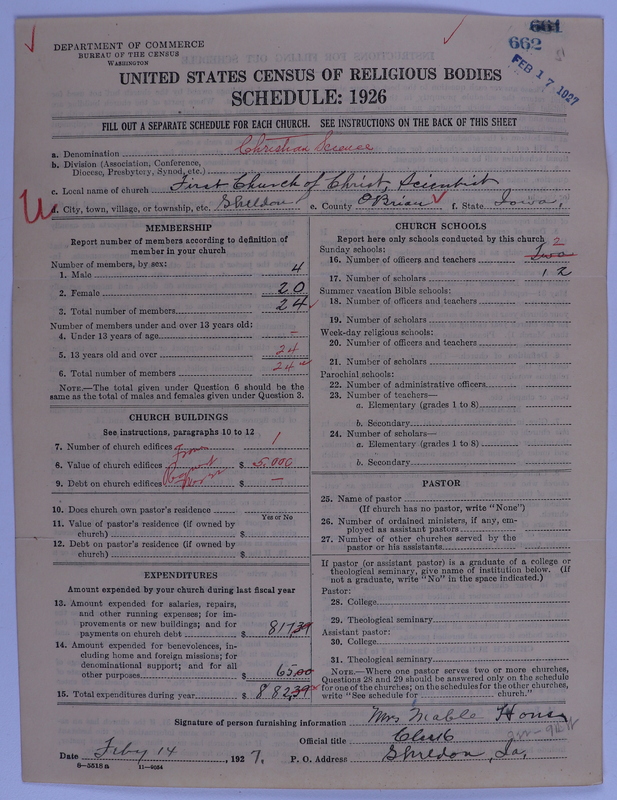 661
662
FEB 17 1927
DEPARTMENT OF COMMERCE
BUREAU OF THE CENSUS
WASHINGTON
UNITED STATES CENSUS OF RELIGIOUS BODIES
SCHEDULE: 1926
FILL OUT A SEPARATE SCHEDULE FOR EACH CHURCH. SEE INSTRUCTIONS ON THE BACK OF THIS SHEET
a. Denomination Christian Science
b. Division (Association, Conference,
Diocese, Presbytery, Synod, etc.)
c. Local name of church First Church of Christ, Scientist
d. City, town, village, or township, etc. Sheldon e. County O'Brian f. State Iowa
MEMBERSHIP
Report number of members according to definition of
member in your church
Number of members, by sex:
1. Male 4
2. Female 20
3. Total number of members 24
Number of members under and over 13 years old:
4. Under 13 years of age –
5. 13 years old and over 24
6. Total number of members 24
NOTE.—The total given under Question 6 should be the
same as the total of males and females given under Question 3.
CHURCH BUILDINGS
See instructions, paragraphs 10 to 12
7. Number of church edifices 1
From
8. Value of church edifices $ 5.000
9. Debt on church edifices $ —
10. Does church own pastor's residence
Yes or No
11. Value of pastor's residence (if owned by
church) $
12. Debt on pastor's residence (if owned by
church) $
EXPENDITURES
Amount expended by your church during last fiscal year
13. Amount expended for salaries, repairs,
and other running expenses; for im-
provements or new buildings; and for
payments on church debt $ 817.39
14. Amount expended for benevolences, in-
cluding home and foreign missions; for
denominational support; and for all
other purposes $ 65.00
15. Total expenditures during year $ 882.39
CHURCH SCHOOLS
Report here only schools conducted by this church
Sunday schools: 2
16. Number of officers and teachers Two
17. Number of scholars 12
Summer vacation Bible schools:
18. Number of officers and teachers
19. Number of scholars
Week-day religious schools:
20. Number of officers and teachers
21. Number of scholars
Parochial schools:
22. Number of administrative officers
23. Number of teachers—
a. Elementary (grades 1 to 8)
b. Secondary
24. Number of scholars—
a. Elementary (grades 1 to 8)
b. Secondary
PASTOR
25. Name of pastor
(If church has no pastor, write "None")
26. Number of ordained ministers, if any, em-
ployed as assistant pastors
27. Number of other churches served by the
pastor or his assistants
If pastor (or assistant pastor) is a graduate of a college or
theological seminary, give name of institution below. (If
not a graduate, write "No" in the space indicated.)
Pastor:
28. College
29. Theological seminary
Assistant pastor:
30. College
31. Theological seminary
NOTE.—Where one pastor serves two or more churches,
Questions 28 and 29 should be answered only on the schedule
for one of the churches; on the schedules for the other churches,
write "See schedule for church."
Signature of person furnishing information Mrs Mable
Official title Clerk
Date Feby 14, 1927. P. O. Address Sheldon, Ia,
8—5518a 11—9034